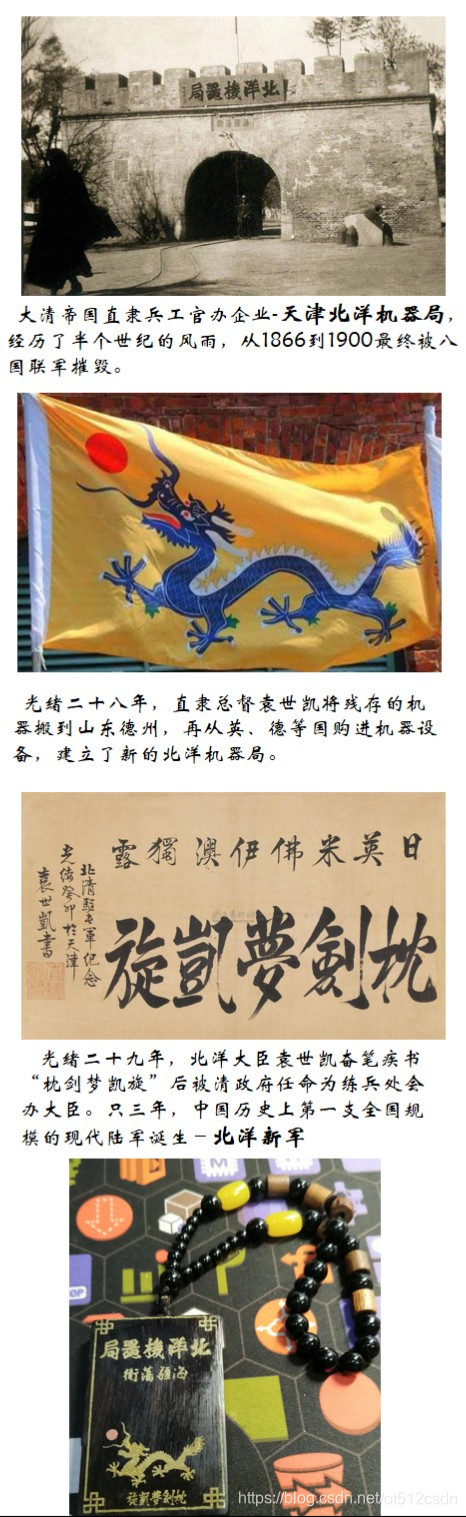 北洋機器局
大清帝国直隶兵工官办企业-天津北洋机器局，
经历了半个世纪的风雨，从1866到1900最终被八
国联军摧毁。
光绪二十八年，直隶总督袁世凯将残存的机
器搬到山东德州，再从英、德等国购进机器设
备，建立了新的北洋机器局。
日英米佛伊澳獨露
枕劍夢凱旋
北清駐屯軍紀念
光緒癸卯於天津
袁世凱書
光绪二十九年，北洋大臣袁世凯奋笔疾书
“枕剑梦凯旋”后被清政府任命为练兵处会
办大臣。只三年，中国历史上第一支全国规
模的现代陆军诞生－北洋新军
北洋機器局
海疆藩衛
枕劍夢凱旋
https://blog.csdn.net/ot512csdn